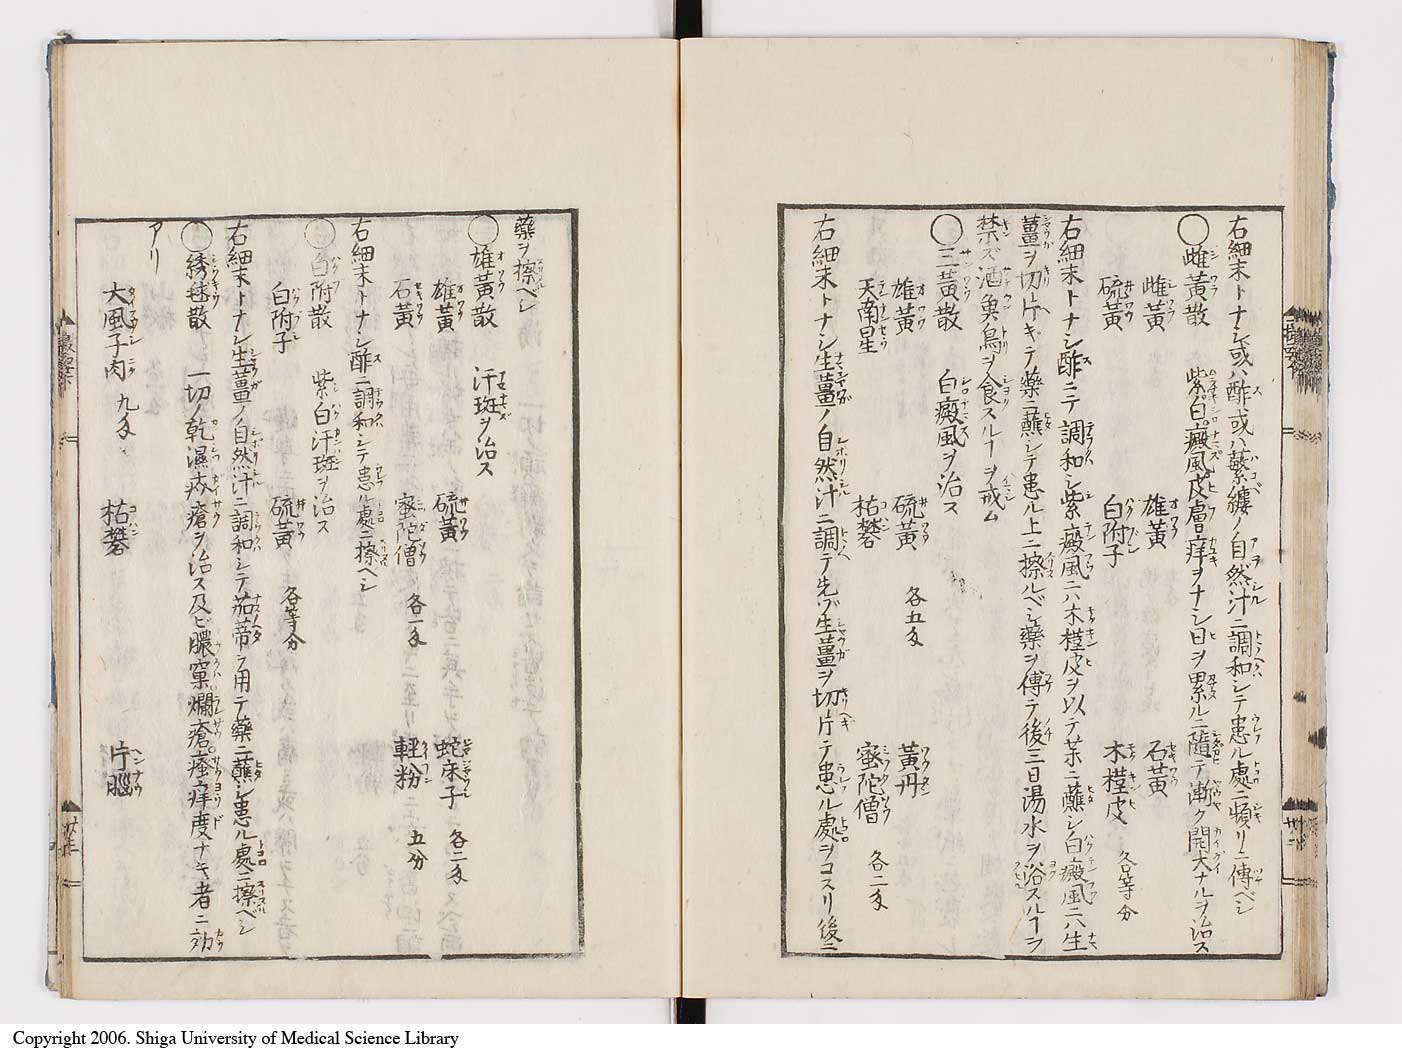 右細末トナシ或ハ酢或ハ蘩縷ノ自然汁ニ調和シテ患ル處ニ頻リニ傅ベシ
◯雌黄散 紫白癜風皮膚痒ヲナシ日ヲ累ルニ隨テ漸ク開大ナルヲ治ス
雌黄 雄黄 石黄
硫黄 白附子 木槿皮 各等分
右細末トナシ酢ニテ調和シ紫癜風ニハ木槿皮ヲ以テ茱ニ蘸シ白癜風ニハ生
薑ヲ切片キテ藥ニ蘸シテ患ル上ニ擦ルベシ藥ヲ傅テ後三日湯水ヲ浴スルヿヲ
禁ズ酒魚鳥ヲ食スルヿヲ戒ム
◯三黄散 白癜風ヲ治ス
雄黄 硫黄 各五匁 黄丹
天南星 枯礬 蜜陀僧 各二匁
右細末トナシ生薑ノ自然汁ニ調テ先ヅ生薑ヲ切片テ患ル處ヲコスリ後ニ
藥ヲ擦ベシ
◯雄黄散 汗斑ヲ治ス
雄黄 硫黄 蛇床子 各二匁
石黄 蜜陀僧 各一匁 軽粉 五分
右細末トナシ酢ニ調和シテ患ル處ニ擦ベシ
◯白附散 紫白汗斑ヲ治ス
白附子 硫黄 各等分
右細末トナシ生薑ノ自然汁ニ調和シテ茄蒂ヲ用テ藥ニ蘸シ患ル處ニ擦ベシ
◯綉毬散 一切ノ乾濕疥瘡ヲ治ス及ビ膿窠爛瘡瘙痒度ナキ者ニ効
アリ
大風子肉 九匁 枯礬 片腦
Copyright 2006. Shiga University of Medical Science Library